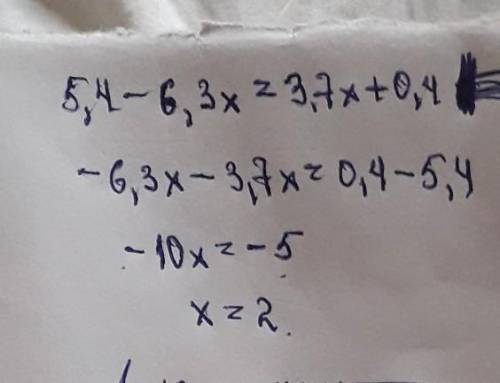 5,4 - 6,3x = 3,7x + 0,4
-6,3x - 3,7x = 0,4 - 5,4
-10x = -5
x = 2.